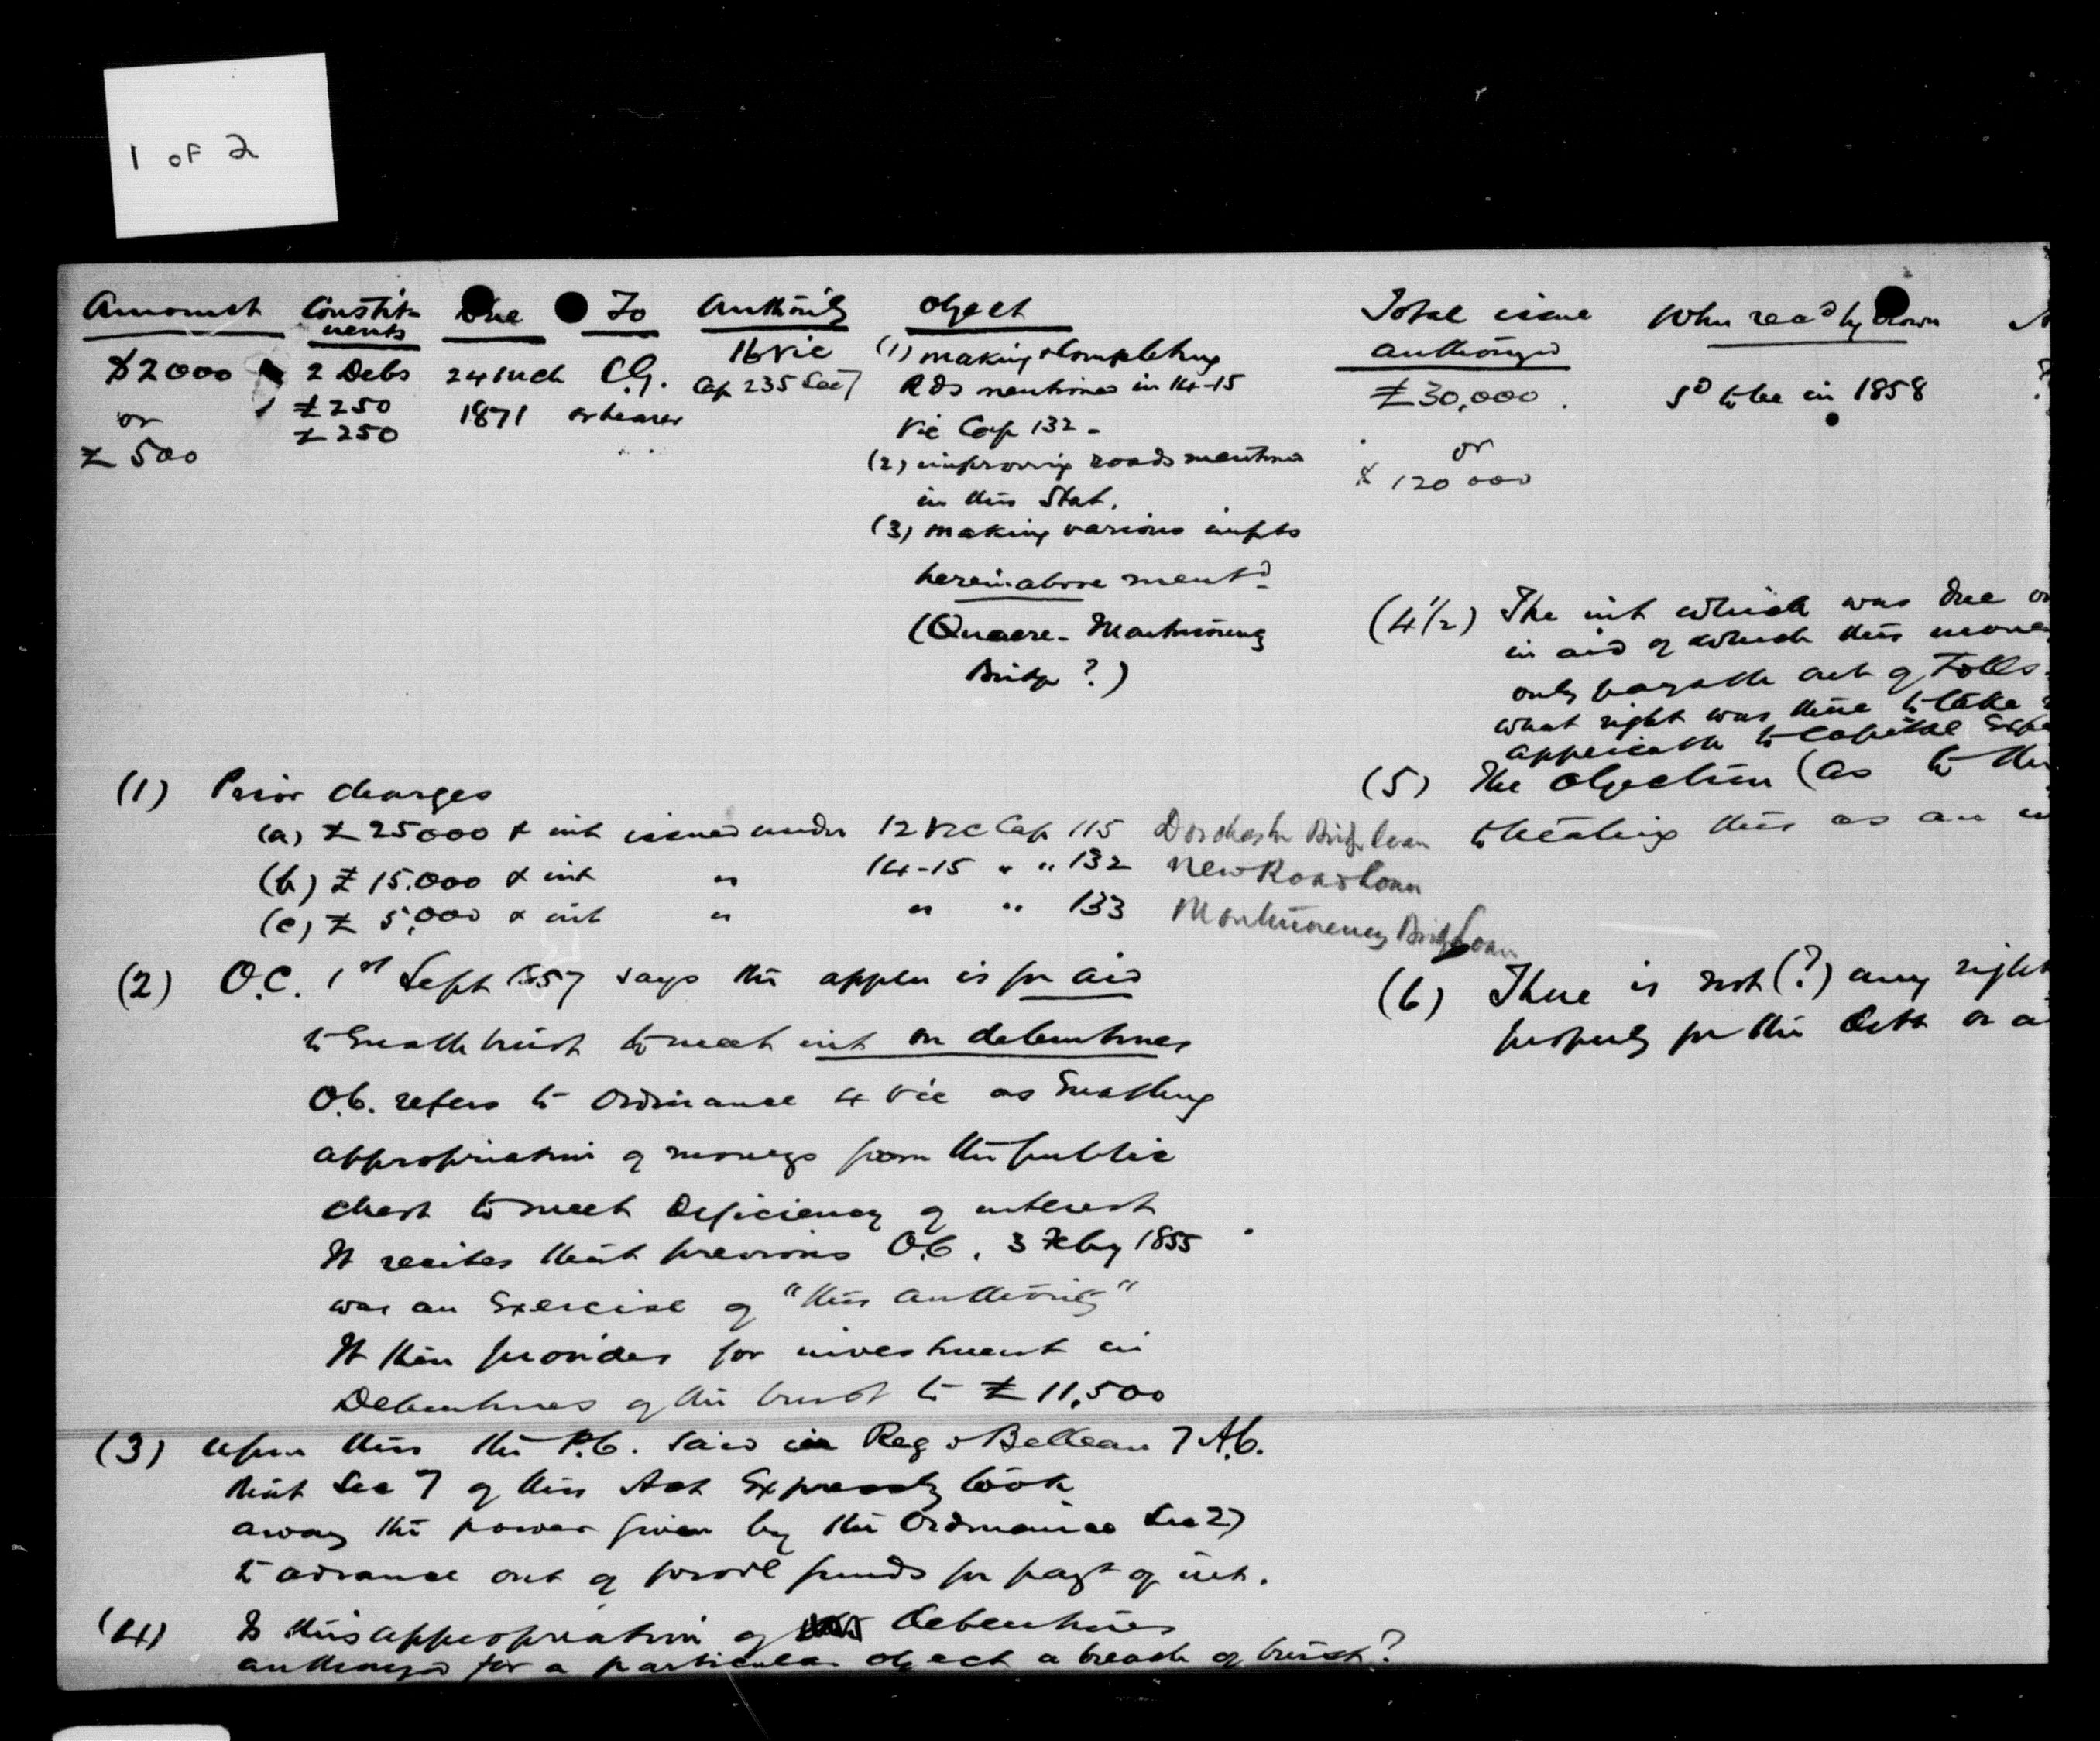 1 of 2
Amount Constit- Due To Authority Object Total issue When recd by Crown
uents authorized
$2000 2 Debs 24 March C.G. 16 Vic (1) making & completing
or £250 1871 or bearer Cap 235 Sec 7 Rds mentioned in 14-15 £30,000. sd to be in 1858 ?
£ 500 £ 250 Vic Cap 132 - or
(2) improving roads mentioned $ 120 000
in this Stat.
(3) making various impts
hereinabove mentd
(Quaere - Montmorency
Bridge ?)
(1) Prior charges
(a) £ 25000 & int issued under 12 Vic Cap 115 Dorchester Bridge loan
(b) £ 15.000 & int " 14-15 " " 132 New Road Loan
(c) £ 5,000 & int " " " 133 Montmorency Bridge Loan
(2) O.C. 1st Sept 1857 says the appln is for aid
to enable trust to meet int on debentures
O.C. refers to Ordinance 4 Vic as enabling
appropriation of moneys from the public
chest to meet deficiency of interest
It recites that previous O.C. 3 Feby 1855
was an exercise of "this authority"
It then provides for investment in
Debentures of the trust to £ 11,500
(3) Upon this the P.C. said in Reg v Belleau 7 A.C.
that Sec 7 of this Act Expressly took
away the power given by the Ordinance Sec 27
to advance out of provl funds for payt of int.
(4) Is this appropriation of Debentures
authorized for a particular object a breach of trust?
(4 1/2) The int which was due
in aid of which this money
only payable out of Tolls.
what right was there to take
applicable to Capital
(5) The objection (as to
to treating this as an
(6) There is not (?) any right
property for the debt or a